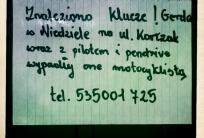 Znaleziono Klucze! Gerda
w Niedziele na ul. Korczak
wraz z pilotem i pendrive
wypadły one motocykliście
tel. 535001725